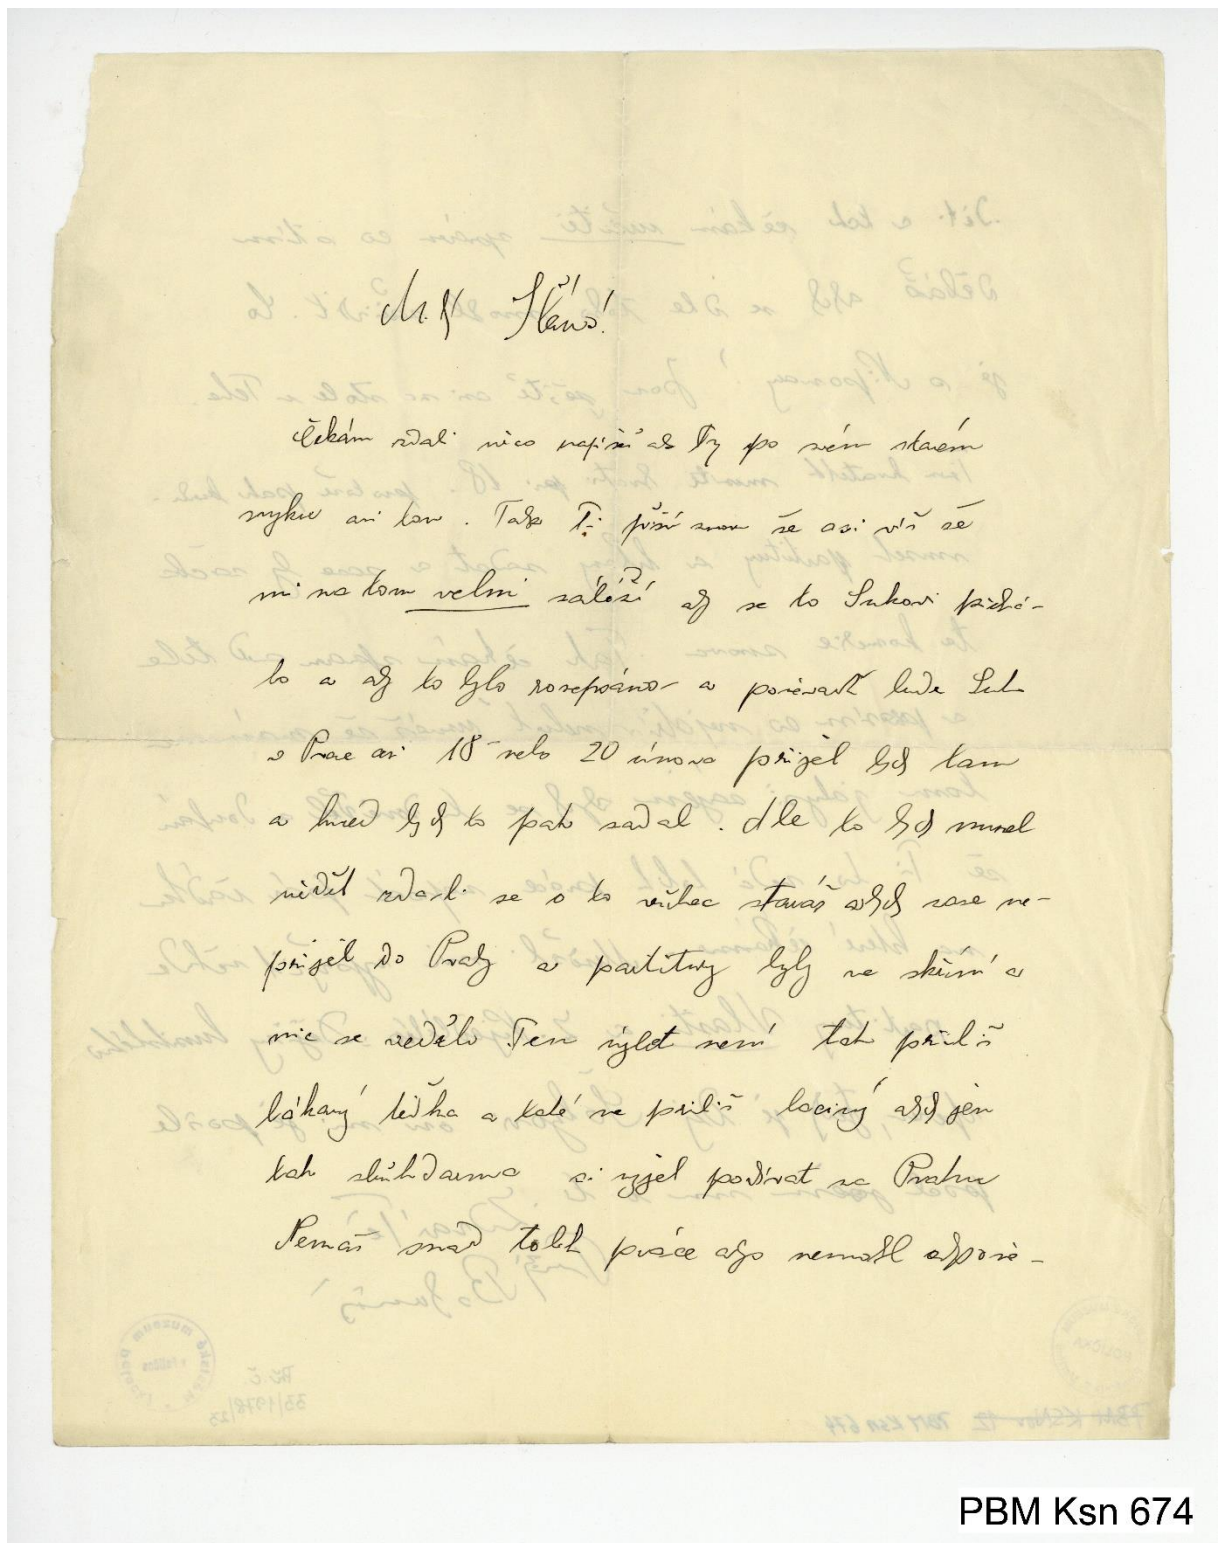 M. Stáňo!
Čekám zdali něco napíšeš ale Ty po svém starém
zvyku ani ťuk. Tak Ti píši znovu že asi víš že
mi na tom velmi záleží aby se to Sukovi předá-
lo a aby to bylo rozepsáno a poněvadž bude Suk
v Praze asi 18 nebo 20 února přijel bych tam
a hned bych to pak zadal. Ale to bych musel
vědět zda-li se o to vůbec staráš abych zase ne-
přijel do Prahy a partitury byly ve skříni a
nic se nedělo Ten výlet není tak příliš
lákavý těžko a také ne příliš laciný abych jen
tak zbůhdarma si vyjel podívat na Prahu
Nemáš snad tolik práce abys nemohl odpově-
PBM Ksn 674